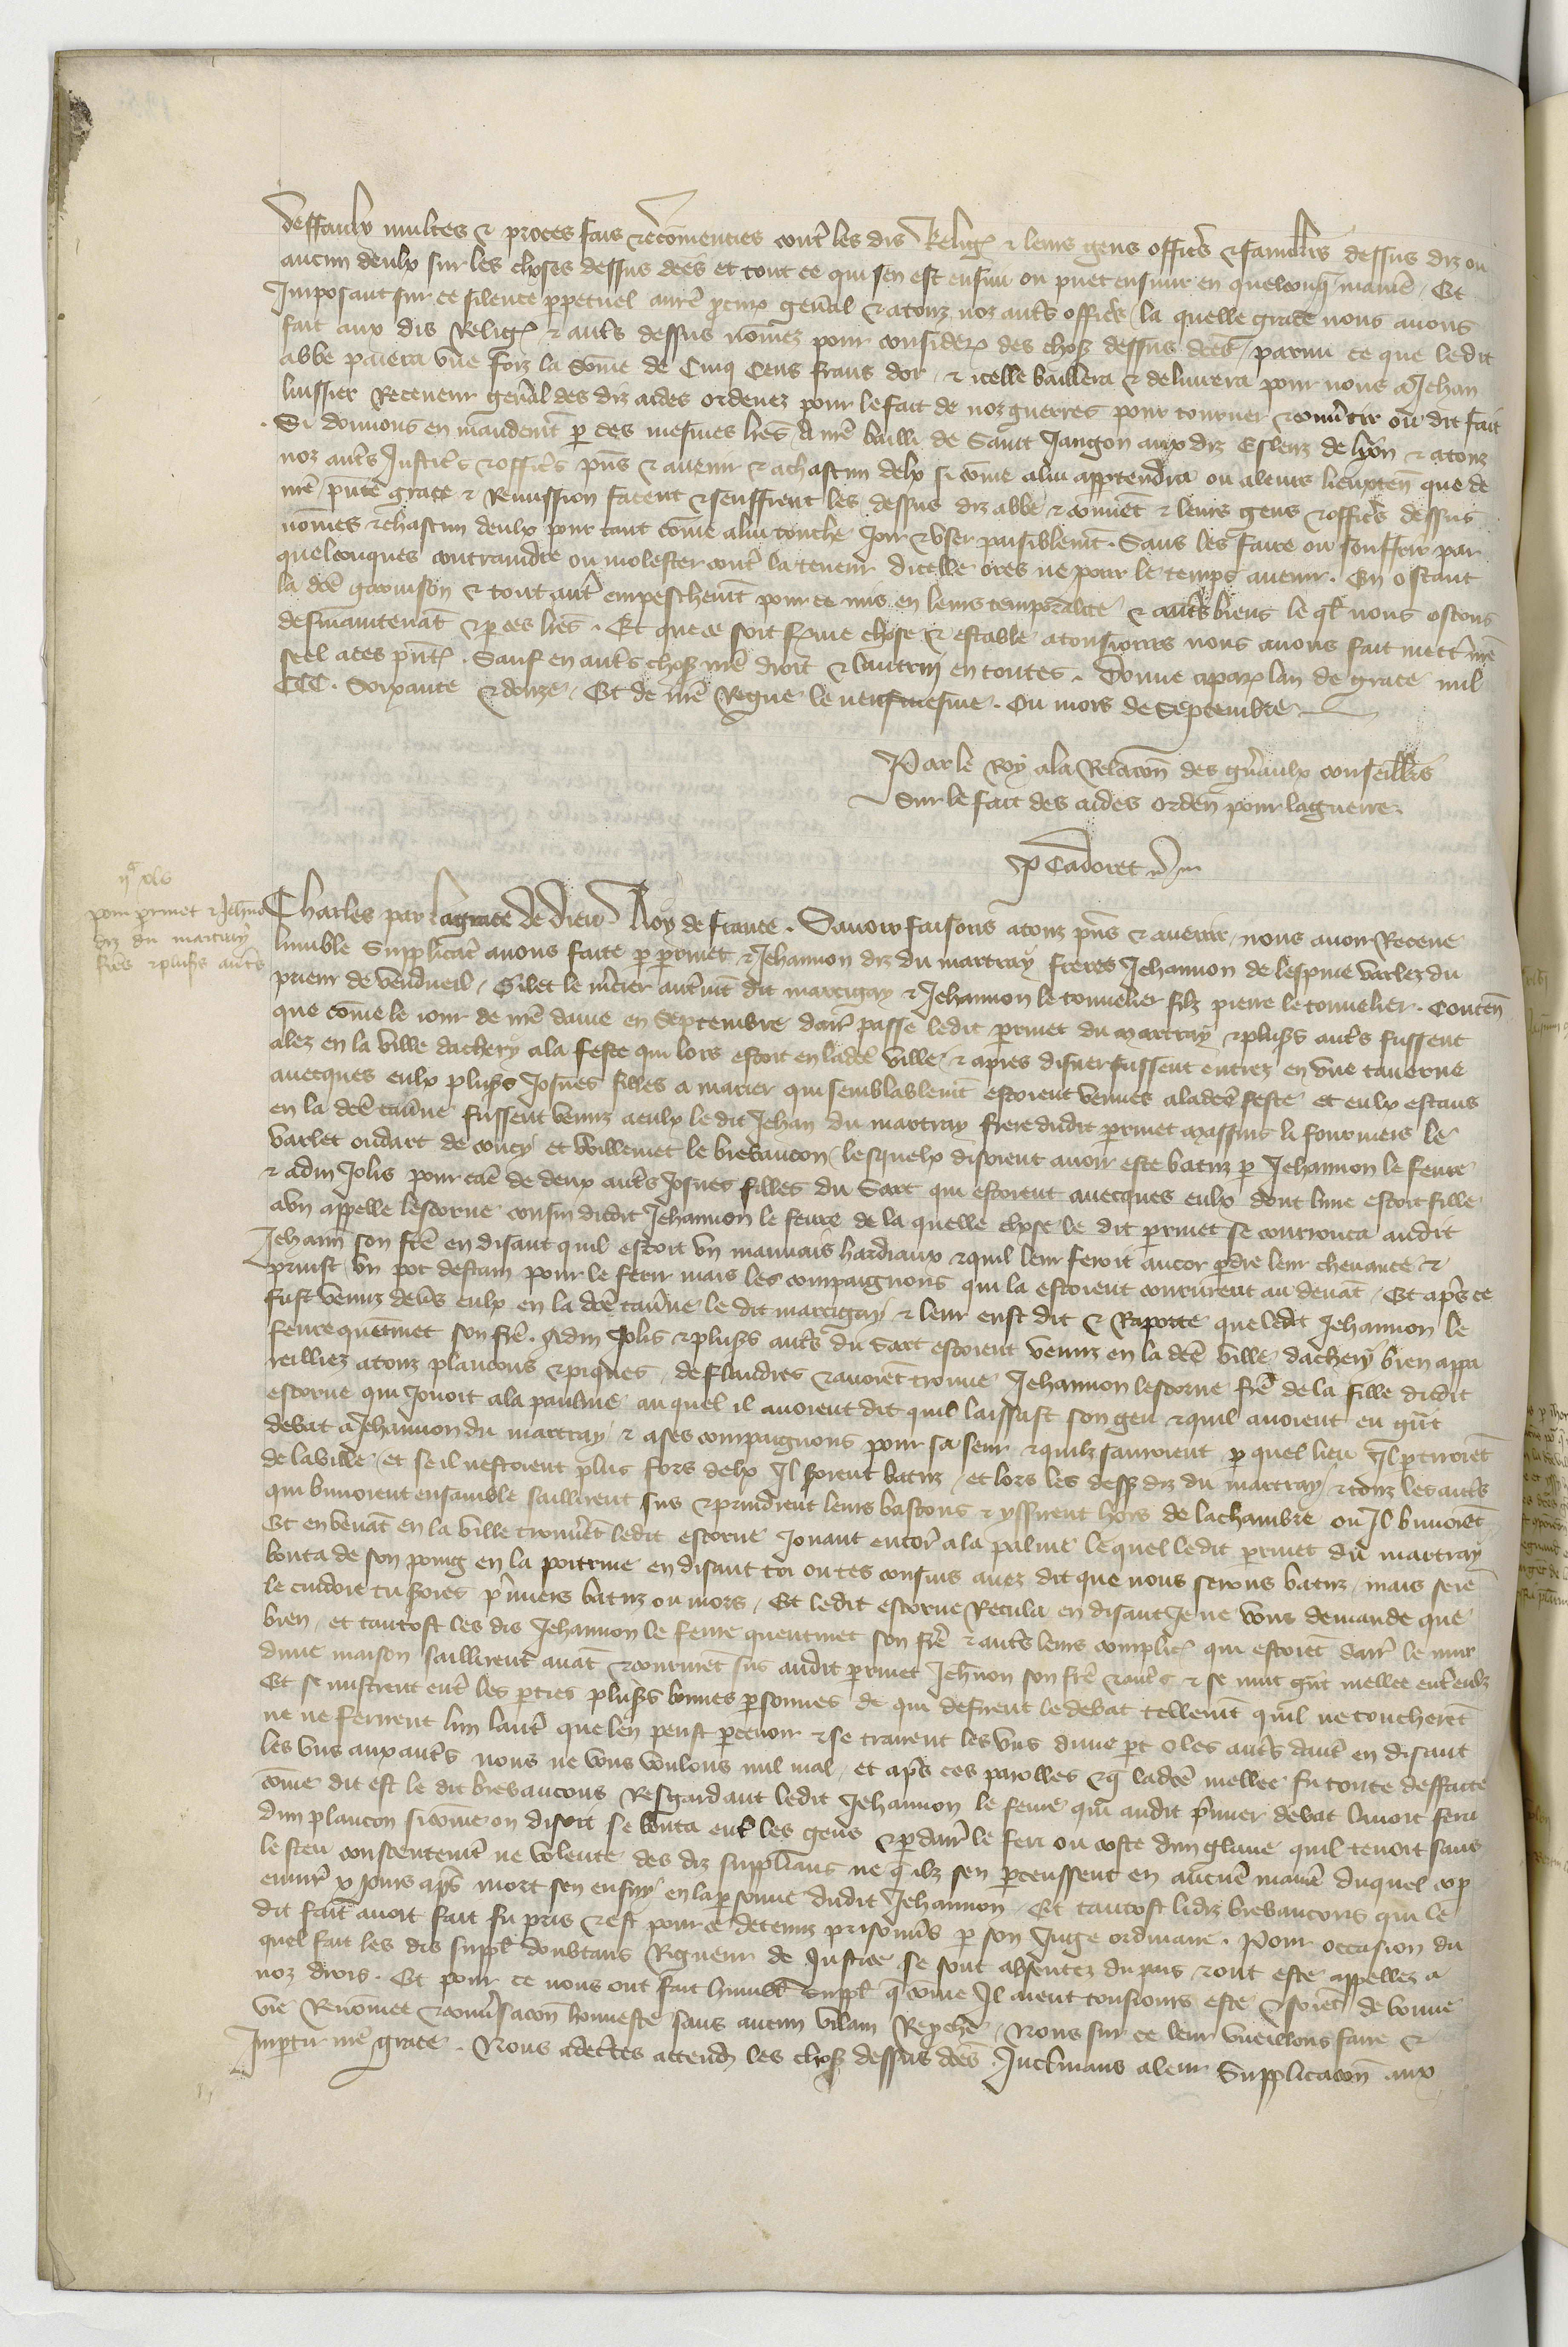 deffaulx multes & proces fais & encōmenciez contr̄ les dis Relig̃ & leurs gens offic̄s & familliers dessus diz ou
aucun deulx sur les choses dessus dc̄es et tout ce qui sen est ensui ou puet ensuir en quelconq̄ manier̄ Et
Imposant sur ce silence ꝑpetuel a nr̄e procur̄ gen̄al & a touz noz autr̄s offic̄s / la quelle grace nous auons
fait aux dis Relig̃ & autr̄s dessus nōmez pour considerac̄ des choses dessus dc̄es / parmi ce que ledit
abbe paiera vne foiz la sōme de Cinq Cens frans dor & icelle baillera & deliurera pour nous a Jehan
luissier Receueur gen̄al des diz aides ordenez pour le fait de noz guerres pour tourner & conūtir ou dit fait
Si donnons en mandemēt ꝑ ces mesmes lr̄es A nr̄e bailli de Saint Jangon aux diz Esleuz de lyon & a touz
noz autr̄s Justic̄s & offic̄s pn̄s & auenir & a chascun delx si cōme a lui appartendra ou a leurs lieuxten̄ que de
nr̄e pn̄te grace & Remission facent & seuffrent les dessus diz abbe & conuent & leurs gens & offic̄s dessus
nōmes & chascun deulx pour tant cōme a lui touche Joir & vser paisiblemēt. Sans les faire ou souffrir par
quelconques contraindre ou molester contr̄ la teneur dicelle ores ne pour le temps auenir. En ostant
la dc̄e garnison & tout autr̄ empeschemēt pour ce mis en leurs temporalite & autr̄s biens le ql̄ nous ostons
desmaintenāt & ꝑ ces lr̄es. Et que ce soit ferme chose & estable a tousiours nous auons fait mettr̄ nr̄e
seel a ces pn̄tes. Sauf en autr̄s choses nr̄e droit & lautruy en toutes. Donne a paris lan de grace mil
CCC. Soixante & douze Et de nr̄e Regne le neufuiesme. Ou mois de Septembre
Par le Roy a la Relac̄on des gn̄aulx conseilliers
Sur le fait des aides orden̄ pour la guerre
P Cadoret
pour perinet & Jeh̄no
diz du martray
frēs & plus̄s autr̄s
Charles par la grace de dieu Roy de france. Sauoir faisons a touz pn̄s & auenir / nous auoir Receue
lumble Supplicac̄ a nous faite ꝑ perinet & Jehannon diz du martray freres Jehannon de lespine varlez du
prieur de vendueil / Gilet le mērier autremēt dit marrigay & Jehannon le tonnelier filz pierre le tonnelier. Conten̄
que cōme le iour de nr̄e dame en Septembre darr̄ passe ledit perinet du martray & plus̄s autr̄s fussent
alez en la ville dachery a la feste qui lors estoit en la dc̄e ville & apres disner fussent entrez en vne tauerne
auecques eulx plus̄s Josnes filles a marier qui semblablemēt estoient venues a la dc̄e feste et eulx estans
en la dc̄e tau̅ne fussent venuz a eulx le dit Jehan du martray frere dudit perinet massins li fourniers le
varlet oudart de coucy et willemet le breuancon / lesquelx disoient auoir este batuz ꝑ Jehannon le feure
& adin Jolis pour cāe de deux autr̄s Josnes filles du Sart qui estoient auecques eulx dont lune estoit fille
a vn appelle lescorne cousin dudit Jehannon le feure de la quelle chose le dit perinet se courouca audit
Jehann̄ son frē en disant quil estoit vn mauuais hardiaux & quil leur feroit ancor ꝑdre leur cheuance &
prinst vn pot destain pour le ferir mais les compaignons qui la estoient coururent au deuāt / Et apr̄s ce
fust venuz deu̅s eulx en la dc̄e tau̅ne le dit marrigay & leur eust dit & Raporte que ledit Jehannon le
feure quentinet son frē. Adin Jolis & plus̄s autr̄s du Sart estoient venuz en la dc̄e ville dachery bien appa
reilliez a touz plancons & piques de flandres & auoiēt trouue Jehannon lescorne frē de la fille dudit
escorne qui Jouoit a la paulme au quel il auoient dit quil laissast son geu & quil auoient eu gr̄āt
debat a Jehannon du martray & a ses compaignons pour sa seur & quilz sauroient ꝑ quel lieu Il ꝑtiroiēt
de la ville / et se il nestoient plus fors delx Il seroient batuz / et lors les dess̄ diz du martray & touz les autr̄s
qui buuoient ensamble saillirent sus & prindrent leurs bastons & yssirent hors de la chambre ou Il buuoiēt
Et en venāt en la ville trouuer̄t ledit escorne Jouant encor̄ a la palme lequel ledit perinet du martray
bouta de son poing en la poitrine en disant toi ou tes cousins auez dit que nous serons batuz / mais se ie
le cuidoie tu seroies p̄miers batuz ou mors / Et ledit escorne Recula en disant Je ne vous demande que
bien / et tantost les dis Jehannon le feure quentinet son frē & autr̄s leurs complic̄ qui estoiēt darr̄ le mur
dune maison saillirent auāt & coururet̄ sus audit perinet Jeh̄non son frē & autr̄s & se mut gr̄āt mellee entr̄ eulz
Et se mistrent entr̄ les ꝑties plus̄s bonnes ꝑsonnes de qui defirent le debat tellemēt quil ne toucherēt
ne ne ferirent lun lautr̄ que len peust ꝑceuoir & se trairent les vns dune ꝑt & les autr̄s dautr̄ en disant
les vns aux autr̄s nous ne vous voulons nul mal / et apr̄s ces parolles & q̄ la dc̄e mellee fu toute deffaitte
cōme dit est le dit breuancons Resgardant ledit Jehannon le feure qui audit p̄mier debat lauoit feru
dun plancon si cōme on disoit se bouta entr̄ les gens & ꝑ darr̄ le feri ou coste dun glaiue quil tenoit sans
le sceu consentemēt ne volente des diz supplians ne q̄ ilz sen ꝑceussent en aucune manier̄ duquel cop
enuir̄ v Jours apr̄s mort sen ensuy en la ꝑsonne dudit Jehannon / Et tantost li diz breuancons qui le
dit fait auoit fait fu pris & est pour ce detenuz prisonn̄s ꝑ son Juge ordinaire. Pour occasion du
quel fait les dis suppl̄ doubtans Rigueur de Justice se sont absentez du pais & ont este appellez a
noz drois. Et pour ce nous ont fait humbl̄ suppl̄ q̄ cōme Il aient tousiours este & soiēt de bonne
vie Renōmee & conu̅sac̄on honneste sans aucun vilain Reprche / Nous sur ce leur vueillons faire &
Impartir nr̄e grace. Nous adec̄tes attend̄ les choses dessus dc̄es Inclinans a leur Supplicac̄on aux